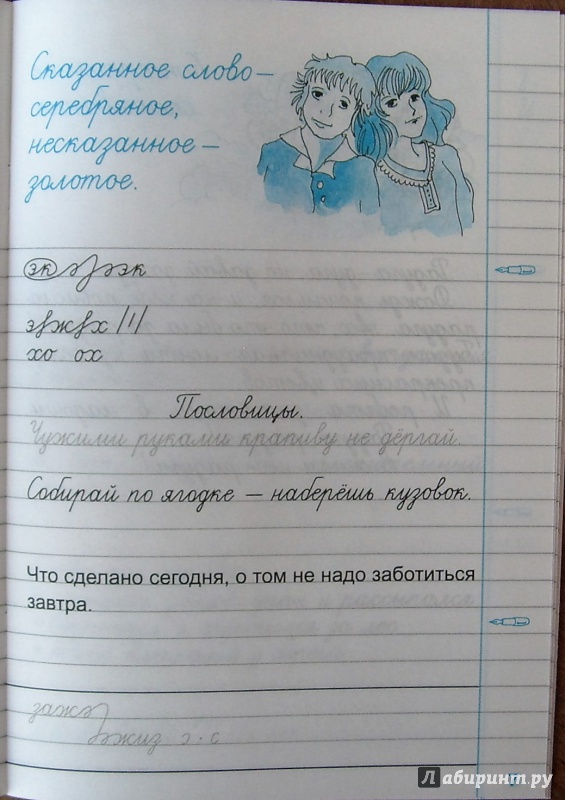 Сказанное слово —
серебряное,
несказанное —
золотое.
эк эк
хо ох
Пословицы.
Чужими руками крапиву не дёргай.
Собирай по ягодке — наберёшь кузовок.
Что сделано сегодня, о том не надо заботиться
завтра.
Лабиринт.ру